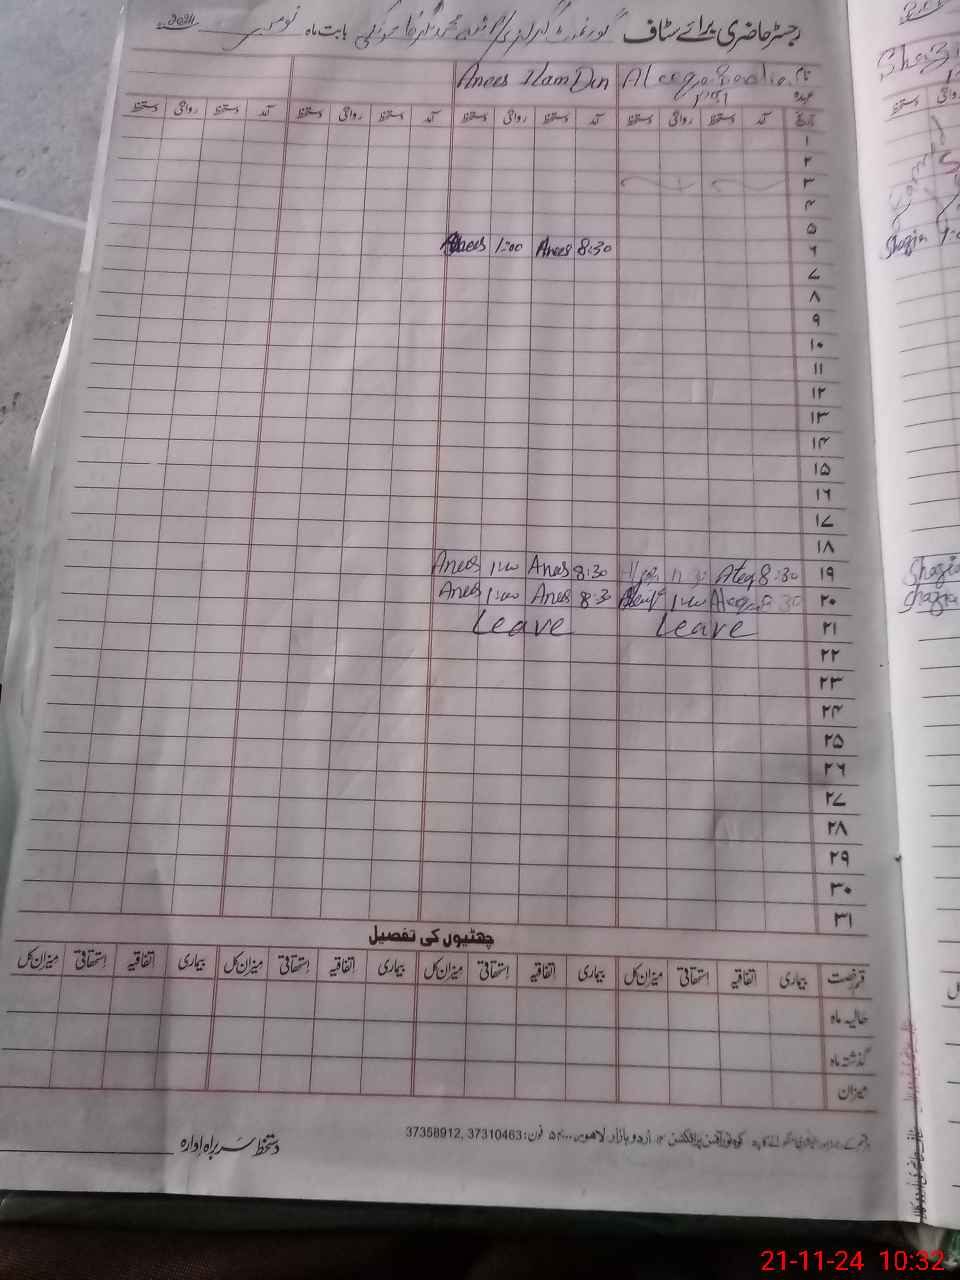 رجسٹر حاضری برائے سٹاف گورنمنٹ گرلز بابت ماہ نومبر
نام Ateeqa Sadia Anees Ilam Din
عہدہ
تاریخ آمد دستخط روانگی دستخط آمد دستخط روانگی دستخط آمد دستخط روانگی دستخط آمد دستخط روانگی دستخط
۱
۲
۳
۴
۵
۶ 8:30 Anees 1:00 Anees
۷
۸
۹
۱۰
۱۱
۱۲
۱۳
۱۴
۱۵
۱۶
۱۷
۱۸
۱۹ 8:30 Ateeq 8:30 Anees 1:00 Anees
۲۰ 8:30 Ateeqa 1:00 8:30 Anees 1:00 Anees
۲۱ Leave Leave
۲۲
۲۳
۲۴
۲۵
۲۶
۲۷
۲۸
۲۹
۳۰
۳۱
چھٹیوں کی تفصیل
قسم رخصت بیماری اتفاقیہ استحقاقی میزان کل بیماری اتفاقیہ استحقاقی میزان کل بیماری اتفاقیہ استحقاقی میزان کل بیماری اتفاقیہ استحقاقی میزان کل
حالیہ ماہ
گذشتہ ماہ
میزان
اردو بازار لاہور فون: 37310463, 37358912
دستخط سربراہ ادارہ
Shazia 1:0
Shazia
Shazia
21-11-24 10:32